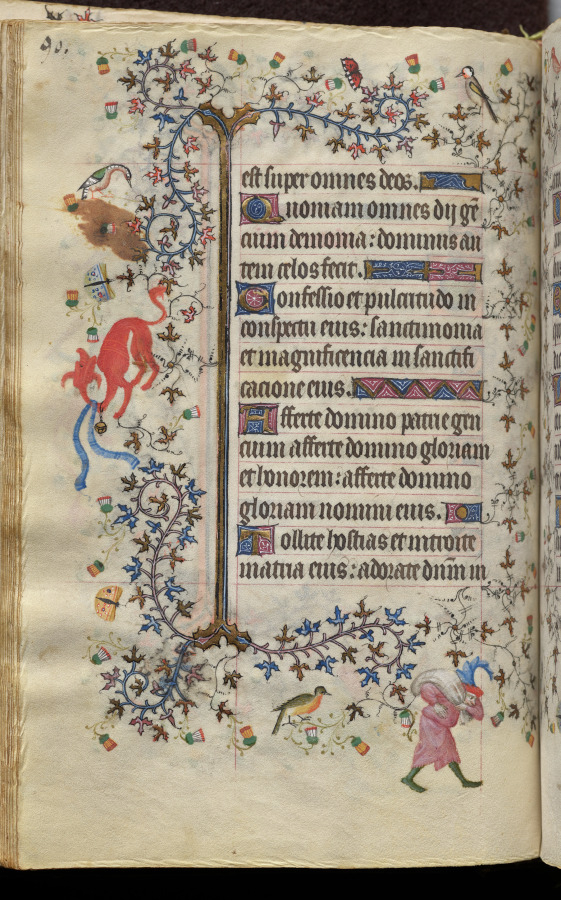 90.
est super omnes deos.
Quoniam omnes dij gē
cium demonia: dominus au
tem celos fecit.
Confessio et pulcritudo in
conspectu eius: sanctimonia
et magnificencia in sanctifi
cacione eius.
Afferte domino patrie gen
cium afferte domino gloriam
et honorem: afferte domino
gloriam nomini eius.
Tollite hostias et introite
in atria eius: adorate dnm̄ in